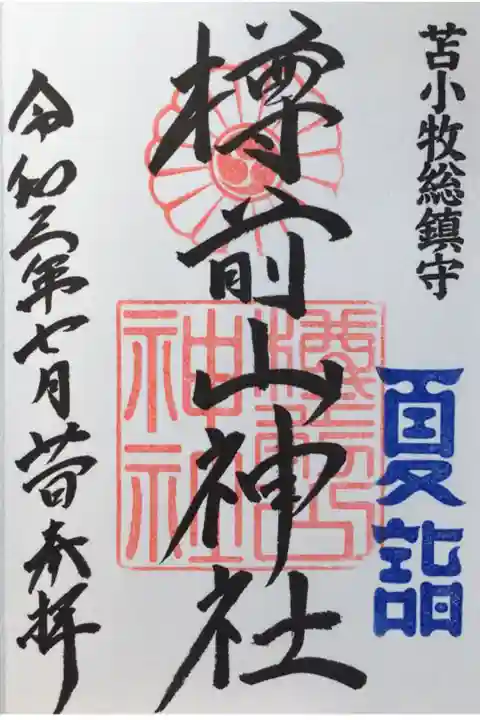 苫小牧総鎮守
夏詣
樽前山神社
樽前山神社
令和三年七月 奉拝